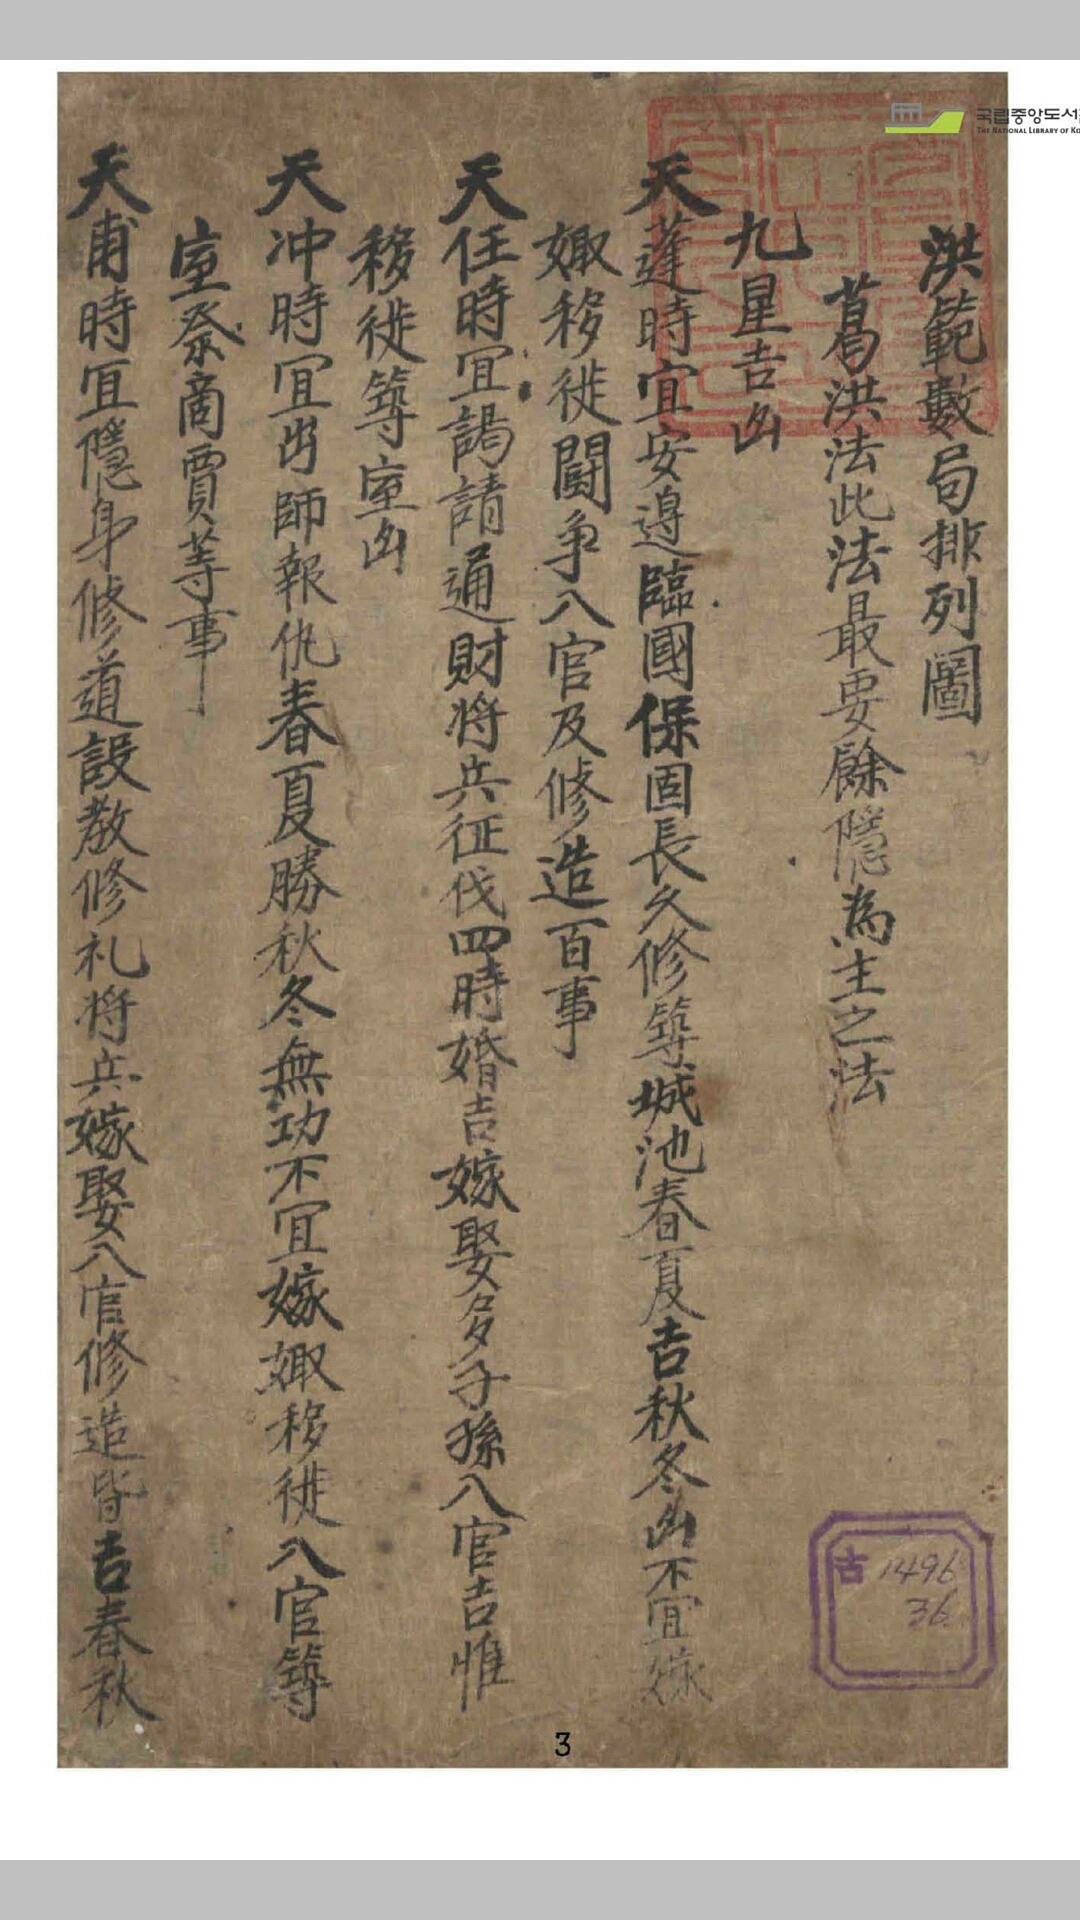 洪範數局排列圖
葛洪法此法最要餘隱為主之法
九星吉凶
天蓬時宜安邉臨國保固長久修築城池春夏吉秋冬凶不宜嫁
娵移徙闘争入官及修造百事
天任時宜謁請通財将兵征伐四時婚吉嫁娶多子孫入官吉惟
移徙築室凶
天冲時宜出師報仇春夏勝秋冬無功不宜嫁娵移徙入官築
室祭商賈等事
天甫時宜隱身修道設教修礼将兵嫁娶入官修造皆吉春秋
국립중앙도서관
THE NATIONAL LIBRARY OF KO
古 1496
36
3